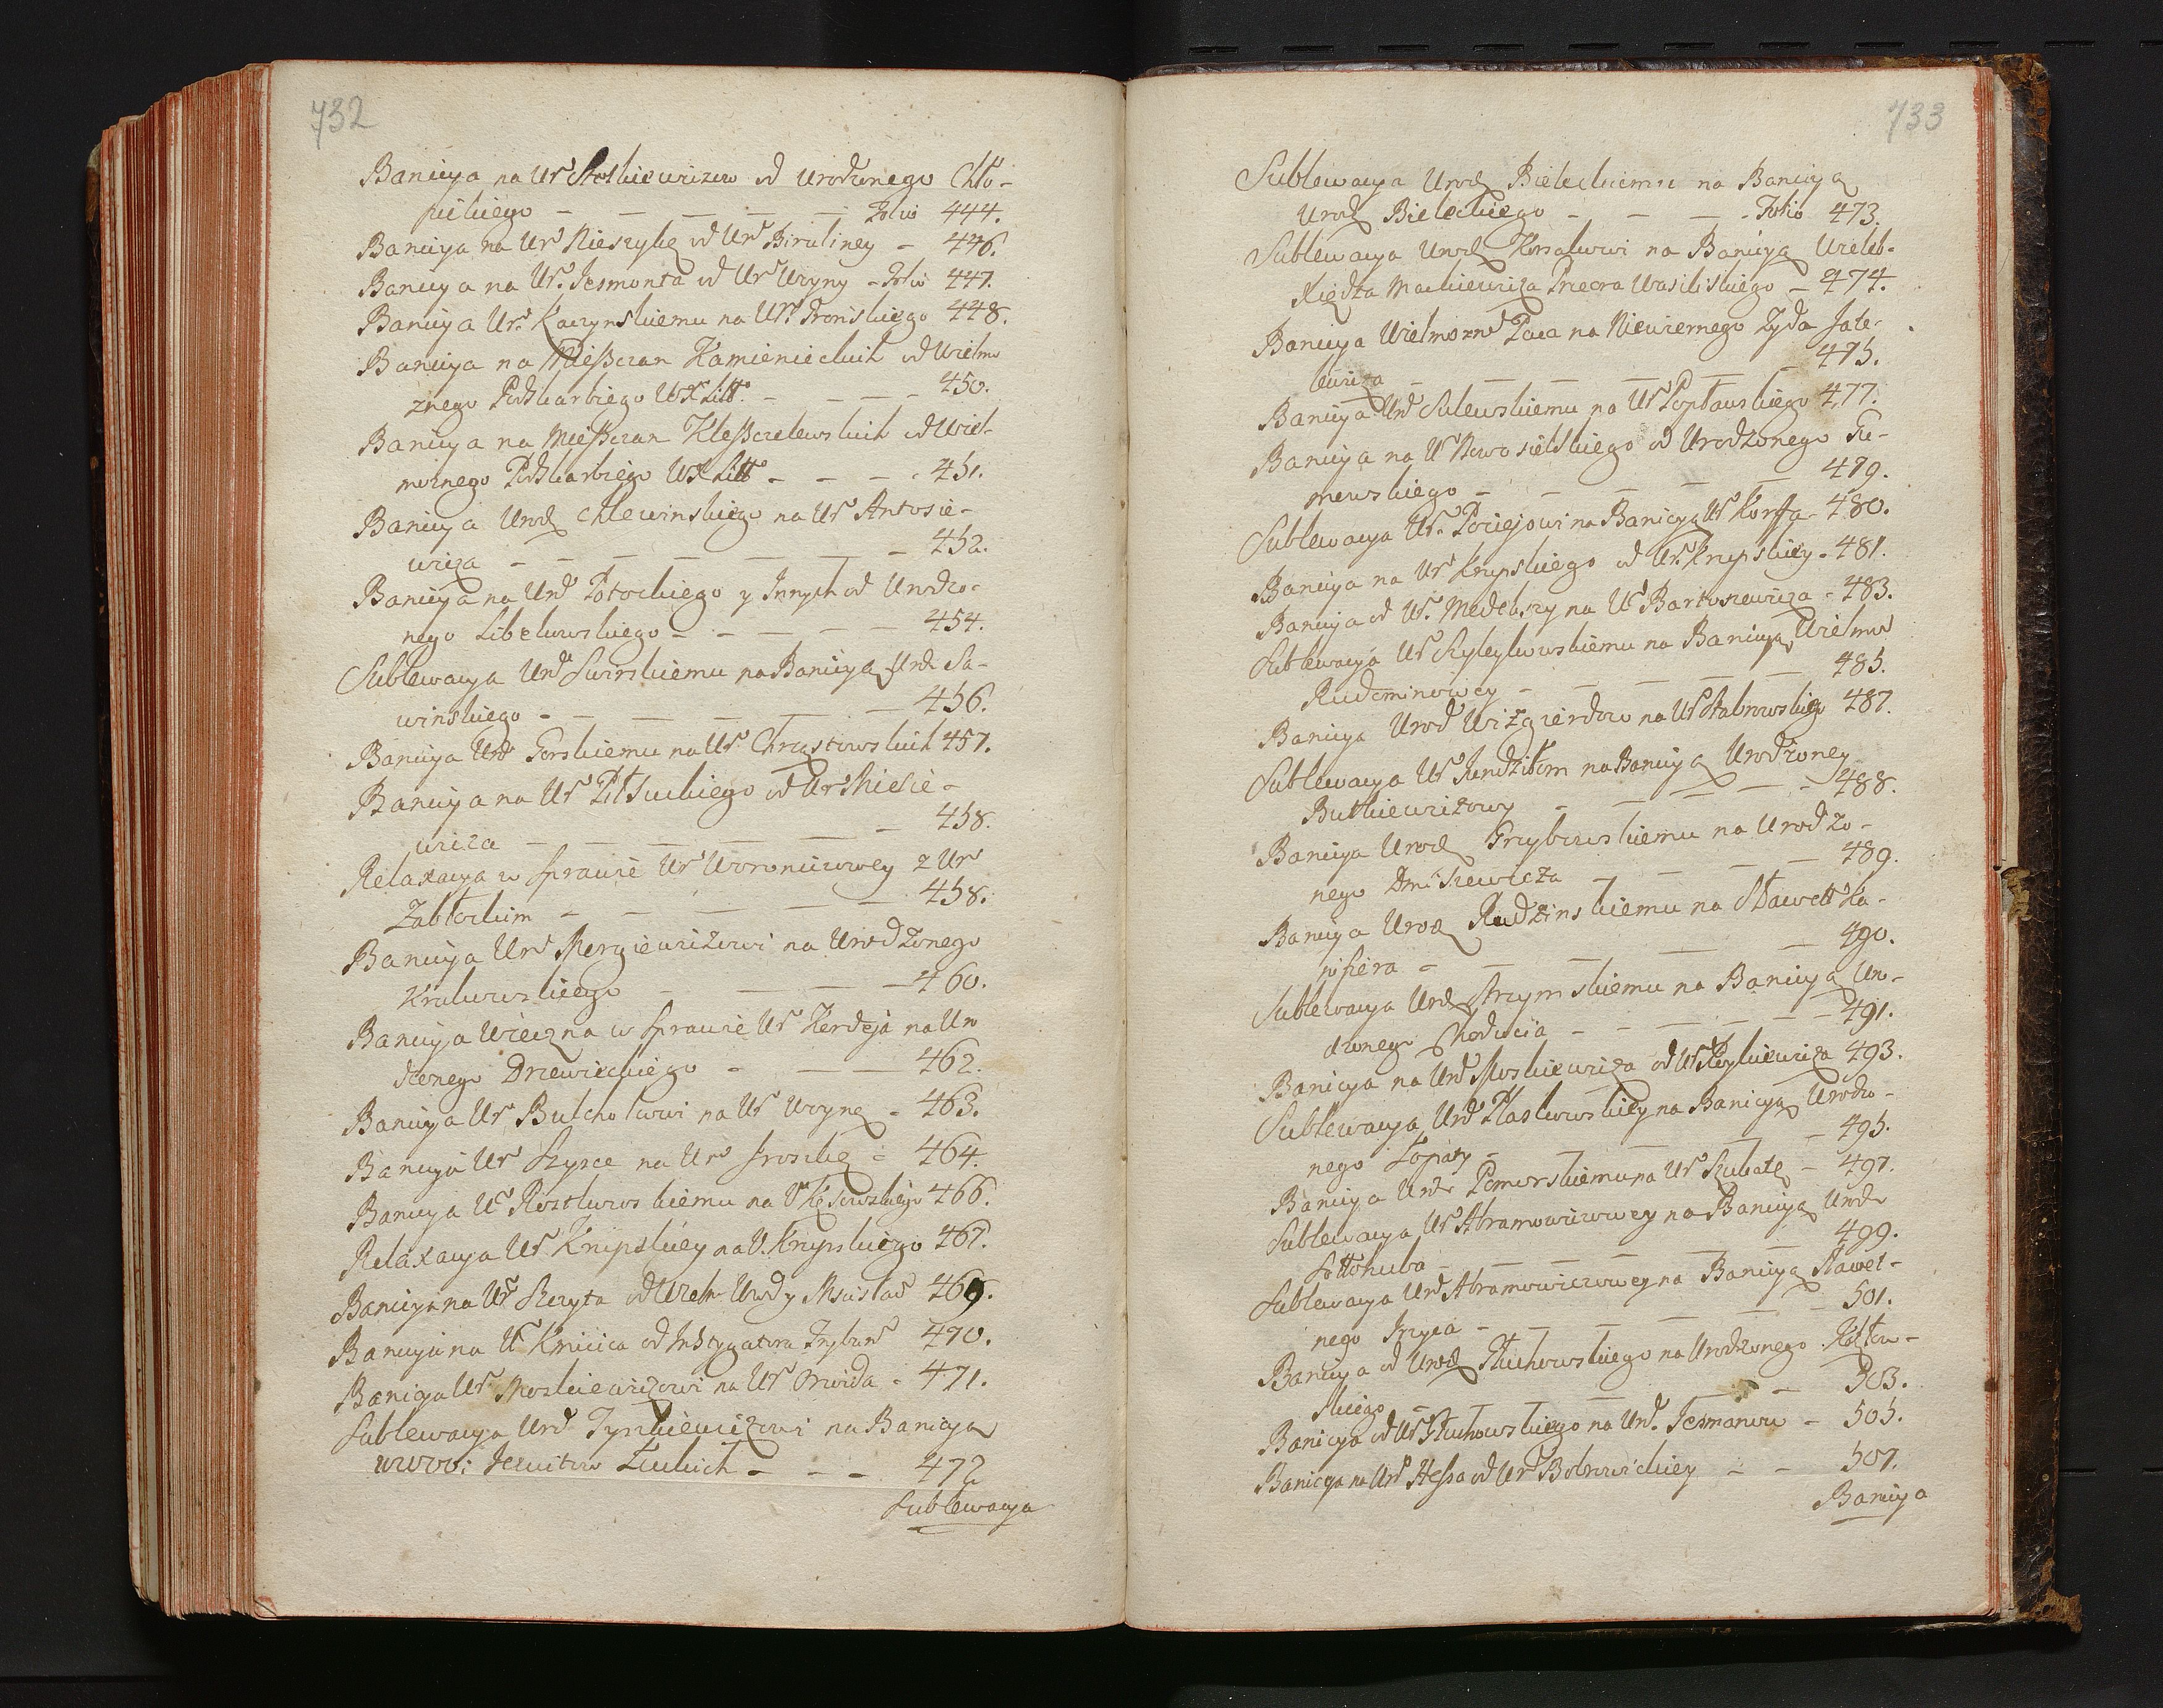 732
Banicya na Ur Stotkiewiczow od Urodzonego Chło-
pickiego - - - - - Folio 444.
Banicya na Ur Nieszykę od Ur Biruliney - 446.
Banicya na Ur. Jesmonta od Ur Woyny - Folio 447.
Banicya Ur. Kaczynskiemu na Ur. Trońskiego 448.
Banicya na Mießczan Kamienieckich od Wielmo
znego Podskarbiego WX Litt. - - - - 450.
Banicya na Mießczan Kleßczelewskich od Wiel-
moznego Podskarbiego WX Litt - - - - 451.
Banicya Urod Chlewinskiego na Ur Antosie-
wicza - - - - - - 452.
Banicya na Urd Potockiego y Innych od Urodzo-
nego Libelowskiego - - - - - 454.
Sublewacya Urd Swirskiemu na Banicyą Urd Sa-
winskiego - - - - - 456.
Banicya Urd Gorskiemu na Ur Chrząstowskich 457.
Banicya na Ur Piłsuckiego od Ur
wicza - - - - - - 458.
Relaxacya w sprawie Ur Woroniczowey z Ur
Zabłockim - - - - - 458.
Banicya Urd Mergiewiczowi na Urodzonego
Krukowskiego - - - - 460.
Banicya Wieczna w sprawie Ur Kierdeja na Uro
dzonego Drzewieckiego - - - 462.
Banicya Ur Bulcholcowi na Ur Woynę - 463.
Banicya Ur Szysce na Ur Jroszkę - 464.
Banicya Ur Rostkowskiemu na U Kęsowskiego 466.
Relaxacya Ur. Knipskiey na U. Knypskiego 467.
Banicya na Ur Szczyta od Wielm Uwdy Mscisław 469.
Banicya na Ur Kmicica od Instygatora Trybun 470.
Banicya Ur Moskiewiczowi na Ur Orwida - 471.
Sublewacya Urd Tyszkiewiczowi na Banicyą
WWOO: Jezuitow Łuckich - - - 472
Sublewacya
733
Sublewacya Urod Bieleckiemu na Banicyą
Urod Bieleckiego - - - - Folio 473.
Sublewacya Urod Korsakowi na Banicyą Wieleb-
Xiędza Mackiewicza Przeora Wasiliskiego - 474.
Banicya Wielmozn Paca na Niewiernego Zyda Jate-
lewicza - - - - - - 475.
Banicya Urd Sulewskiemu na Ur Popławskiego 477.
Banicya na Ur Nowosielskiego od Urodzonego Gu-
mowskiego - - - - - 479.
Sublewacya Ur. Pociejowi na Banicyą Ur Korffa - 480.
Banicya na Ur Knypskiego od Ur. Knypskiey - 481.
Banicya od Ur. Medekszy na Ur Bartoszewicza - 483.
Sublewacya Ur Szyleykowskiemu na Banicyą Wielmo
Rudominowey - - - - - 485.
Banicya Urod Wizgierdow na Ur Stabrowskiego 487.
Sublewacya Ur Jundziłom na Banicyą Urodzoney
Butkiewiczowy - - - - - 488.
Banicya Urod Grzybowskiemu na Urodzo-
nego Dmiszewicza - - - - 489.
Banicya Urod Rudzinskiemu na Sławett Ka-
nifiera - - - - - 490.
Sublewacya Urd Strzymskiemu na Banicyą Uro-
dzonego Chodzcia - - - - - - 491.
Banicya na Urd Moskiewicza od Ur 493.
Sublewacya Urd Płaskowskiey na Banicyą Urodzo-
nego Łopaty - - - - - 495.
Banicya Urdr Pomorskiemu na Ur Szukate - 497.
Sublewacya Ur Abramowiczowey na Banicyą Urodr
Sołłohuba - - - - - 499.
Sublewacya Urd Abramowiczowey na Banicyą Sławet-
nego Jrzyca - - - - - 501.
Banicya od Urod Głuchowskiego na Urodzonego Kołłow-
skiego - - - - - 503.
Banicya od Ur Głuchowskiego na Urd. Jesmanow - 505.
Banicya na Urd Hessa od Ur Bobrowickiey - - 507.
Banicya